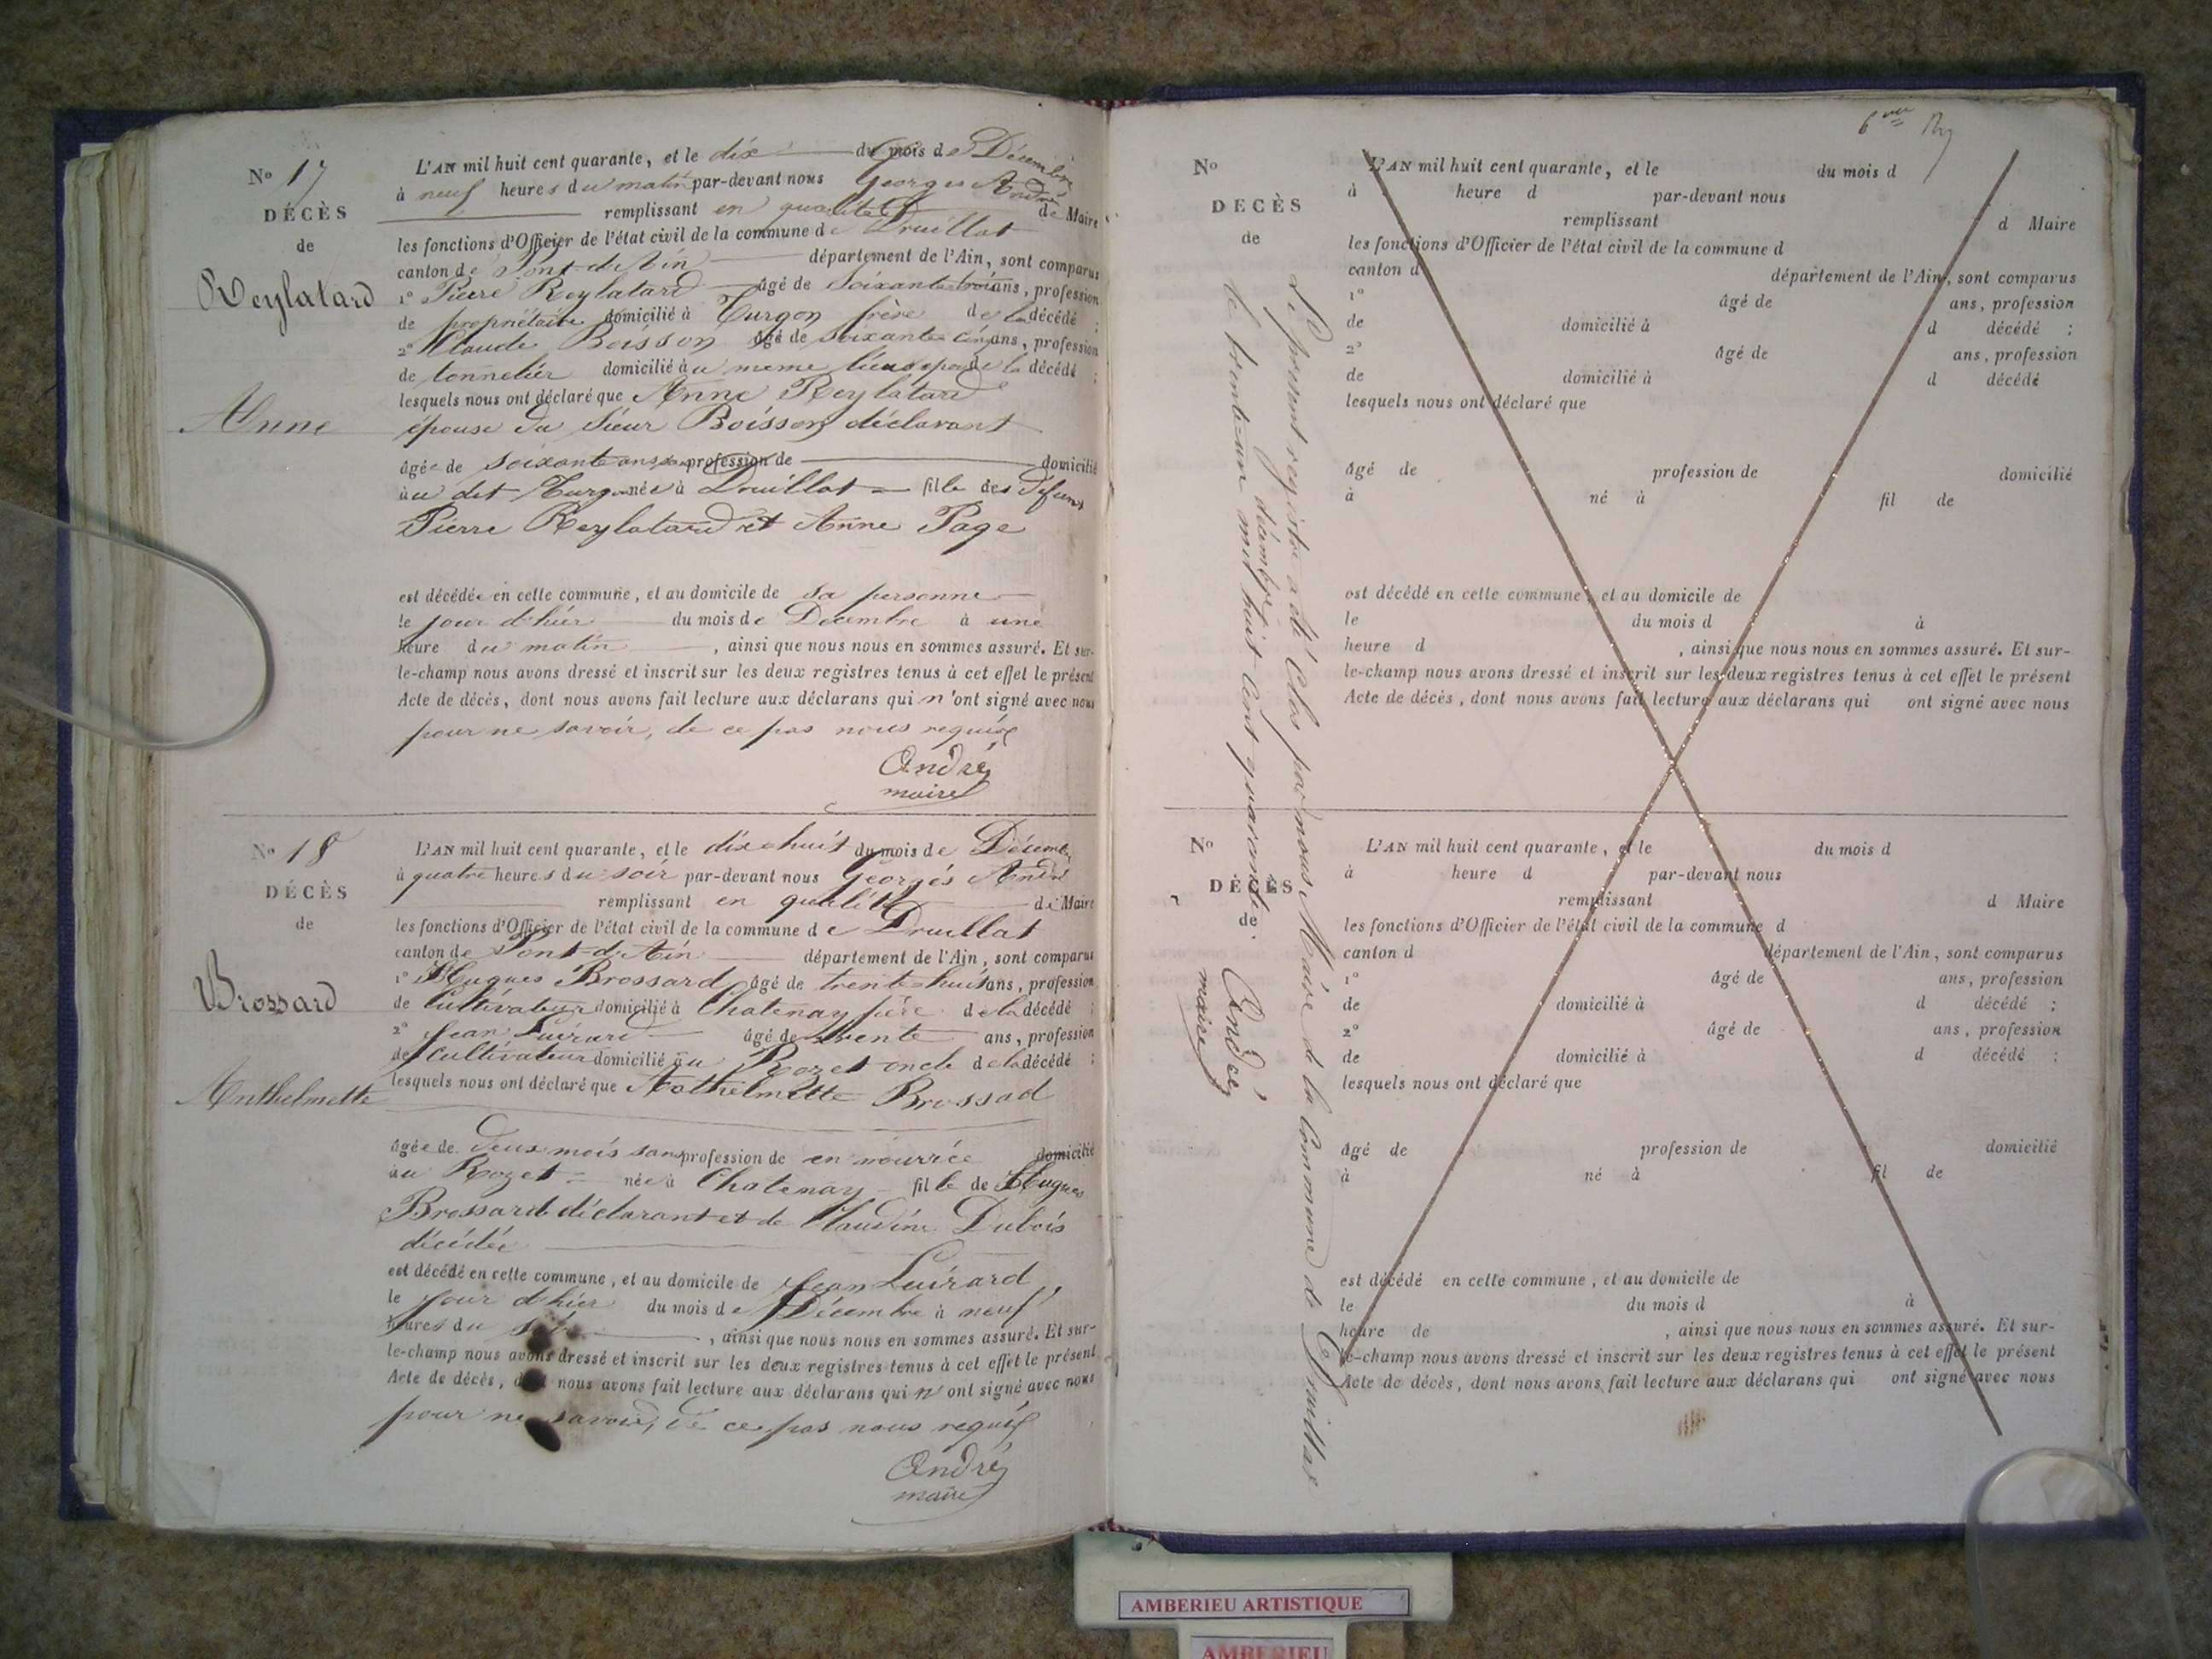 No 17
DÉCÈS
de
Reylatard
Anne
L'AN mil huit cent quarante, et le dix du mois de Décembre
à neuf heures du matin par-devant nous Georges André
remplissant en qualité de Maire
les fonctions d'Officier de l'état civil de la commune de Druillat
canton de Pont-d'Ain département de l'Ain, sont comparus
1° Pierre Reylatard âgé de soixante trois ans, profession
de propriétaire domicilié à Turgon frère de la décédé ;
2° Claude Boisson âgé de soixante cinq ans, profession
de tonnelier domicilié au meme lieu epoux de la décédé ;
lesquels nous ont déclaré que Anne Reylatard
épouse du Sieur Boisson déclarant
âgée de soixante ans sans profession de domicilié
au dit Turgon née à Druillat fille des défunts
Pierre Reylatard et Anne Page
est décédée en cette commune, et au domicile de sa personne
le jour d'hier du mois de Décembre à une
heure du matin, ainsi que nous nous en sommes assuré. Et sur-
le-champ nous avons dressé et inscrit sur les deux registres tenus à cet effet le présent
Acte de décès, dont nous avons fait lecture aux déclarans qui n'ont signé avec nous
pour ne savoir, de ce pas nous requis
André
maire
No 18
DÉCÈS
de
Brossard
Anthelmette
L'AN mil huit cent quarante, et le dix huit du mois de Décembre
à quatre heures du soir par-devant nous Georges André
remplissant en qualité de Maire
les fonctions d'Officier de l'état civil de la commune de Druillat
canton de Pont-d'Ain département de l'Ain, sont comparus
1° Hugues Brossard âgé de trente huit ans, profession
de Cultivateur domicilié à Chatenay père de la décédé ;
2° Jean Luirard âgé de trente ans, profession
de Cultivateur domicilié au Rozet oncle de la décédé ;
lesquels nous ont déclaré que Anthelmette Brossad
âgée de deux mois sans profession de en nourrice domicilié
au Rozet née à Chatenay fille de Hugues
Brossard déclarant et de Claudine Dubois
décédée
est décédé en cette commune, et au domicile de Jean Luirard
le jour d'hier du mois de Décembre à neuf
heures du soir, ainsi que nous nous en sommes assuré. Et sur-
le-champ nous avons dressé et inscrit sur les deux registres tenus à cet effet le présent
Acte de décès, dont nous avons fait lecture aux déclarans qui n'ont signé avec nous
pour ne savoir, de ce pas nous requis
André
maire
6me
No
DECÈS
de
L'AN mil huit cent quarante, et le du mois d
à heure d par-devant nous
remplissant d Maire
les fonctions d'Officier de l'état civil de la commune d
canton d département de l'Ain, sont comparus
1° âgé de ans, profession
de domicilié à d décédé ;
2° âgé de ans, profession
de domicilié à d décédé
lesquels nous ont déclaré que
âgé de profession de domicilié
à né à fil de
est décédé en cette commune, et au domicile de
le du mois d à
heure d , ainsi que nous nous en sommes assuré. Et sur-
le-champ nous avons dressé et inscrit sur les deux registres tenus à cet effet le présent
Acte de décès, dont nous avons fait lecture aux déclarans qui ont signé avec nous
Le présent registre a été Clos par nous Maire de la Commune de Druillat
le trente-un décembre mil huit Cent quarante
André
maire
No
DÉCÈS
de
L'AN mil huit cent quarante, et le du mois d
à heure d par-devant nous
remplissant d Maire
les fonctions d'Officier de l'état civil de la commune d
canton d département de l'Ain, sont comparus
1° âgé de ans, profession
de domicilié à d décédé ;
2° âgé de ans, profession
de domicilié à d décédé ;
lesquels nous ont déclaré que
âgé de profession de domicilié
à né à fil de
est décédé en cette commune, et au domicile de
le du mois d à
heure de , ainsi que nous nous en sommes assuré. Et sur-
le-champ nous avons dressé et inscrit sur les deux registres tenus à cet effet le présent
Acte de décès, dont nous avons fait lecture aux déclarans qui ont signé avec nous
AMBERIEU ARTISTIQUE
AMBERIEU